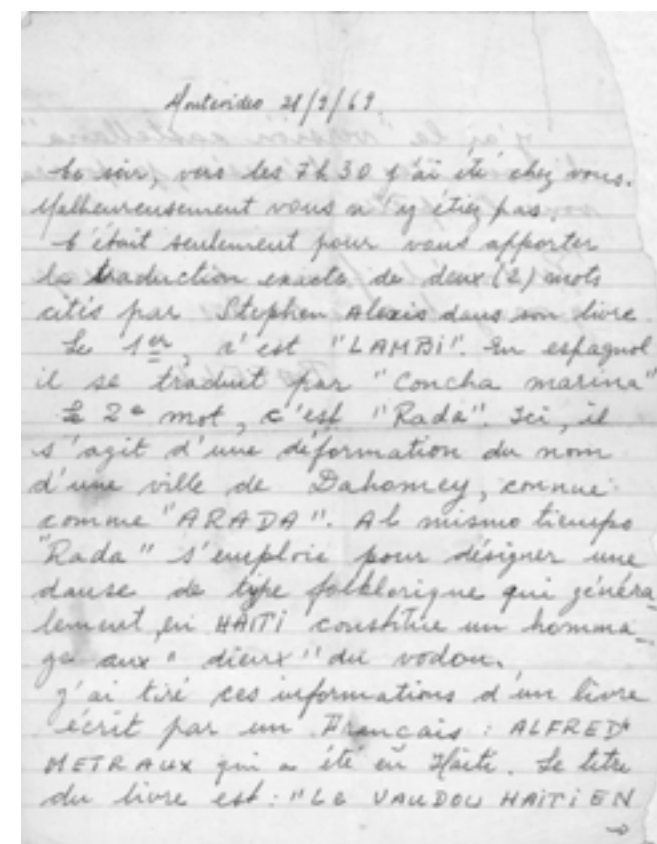 Montevideo 28/9/69
Ce soir, vers les 7h30 j'ai été chez vous.
Malheureusement vous n'y étiez pas.
C'était seulement pour vous apporter
la traduction exacte de deux (2) mots
cités par Stephen Alexis dans son livre.
Le 1er, c'est "LAMBi". En espagnol
il se traduit par "Concha marina"
Le 2e mot, c'est "Rada". Ici, il
s'agit d'une déformation du nom
d'une ville de Dahomey, connue
comme "ARADA". Al mismo tiempo
"Rada" s'emploie pour désigner une
danse de type folklorique qui généra-
lement, en HAITI constitue un homma-
ge aux "dieux" du vodou.
J'ai tiré ces informations d'un livre
écrit par un Français : ALFRED
METRAUX qui a été en Haïti. Le titre
du livre est : "LE VAUDOU HAITIEN